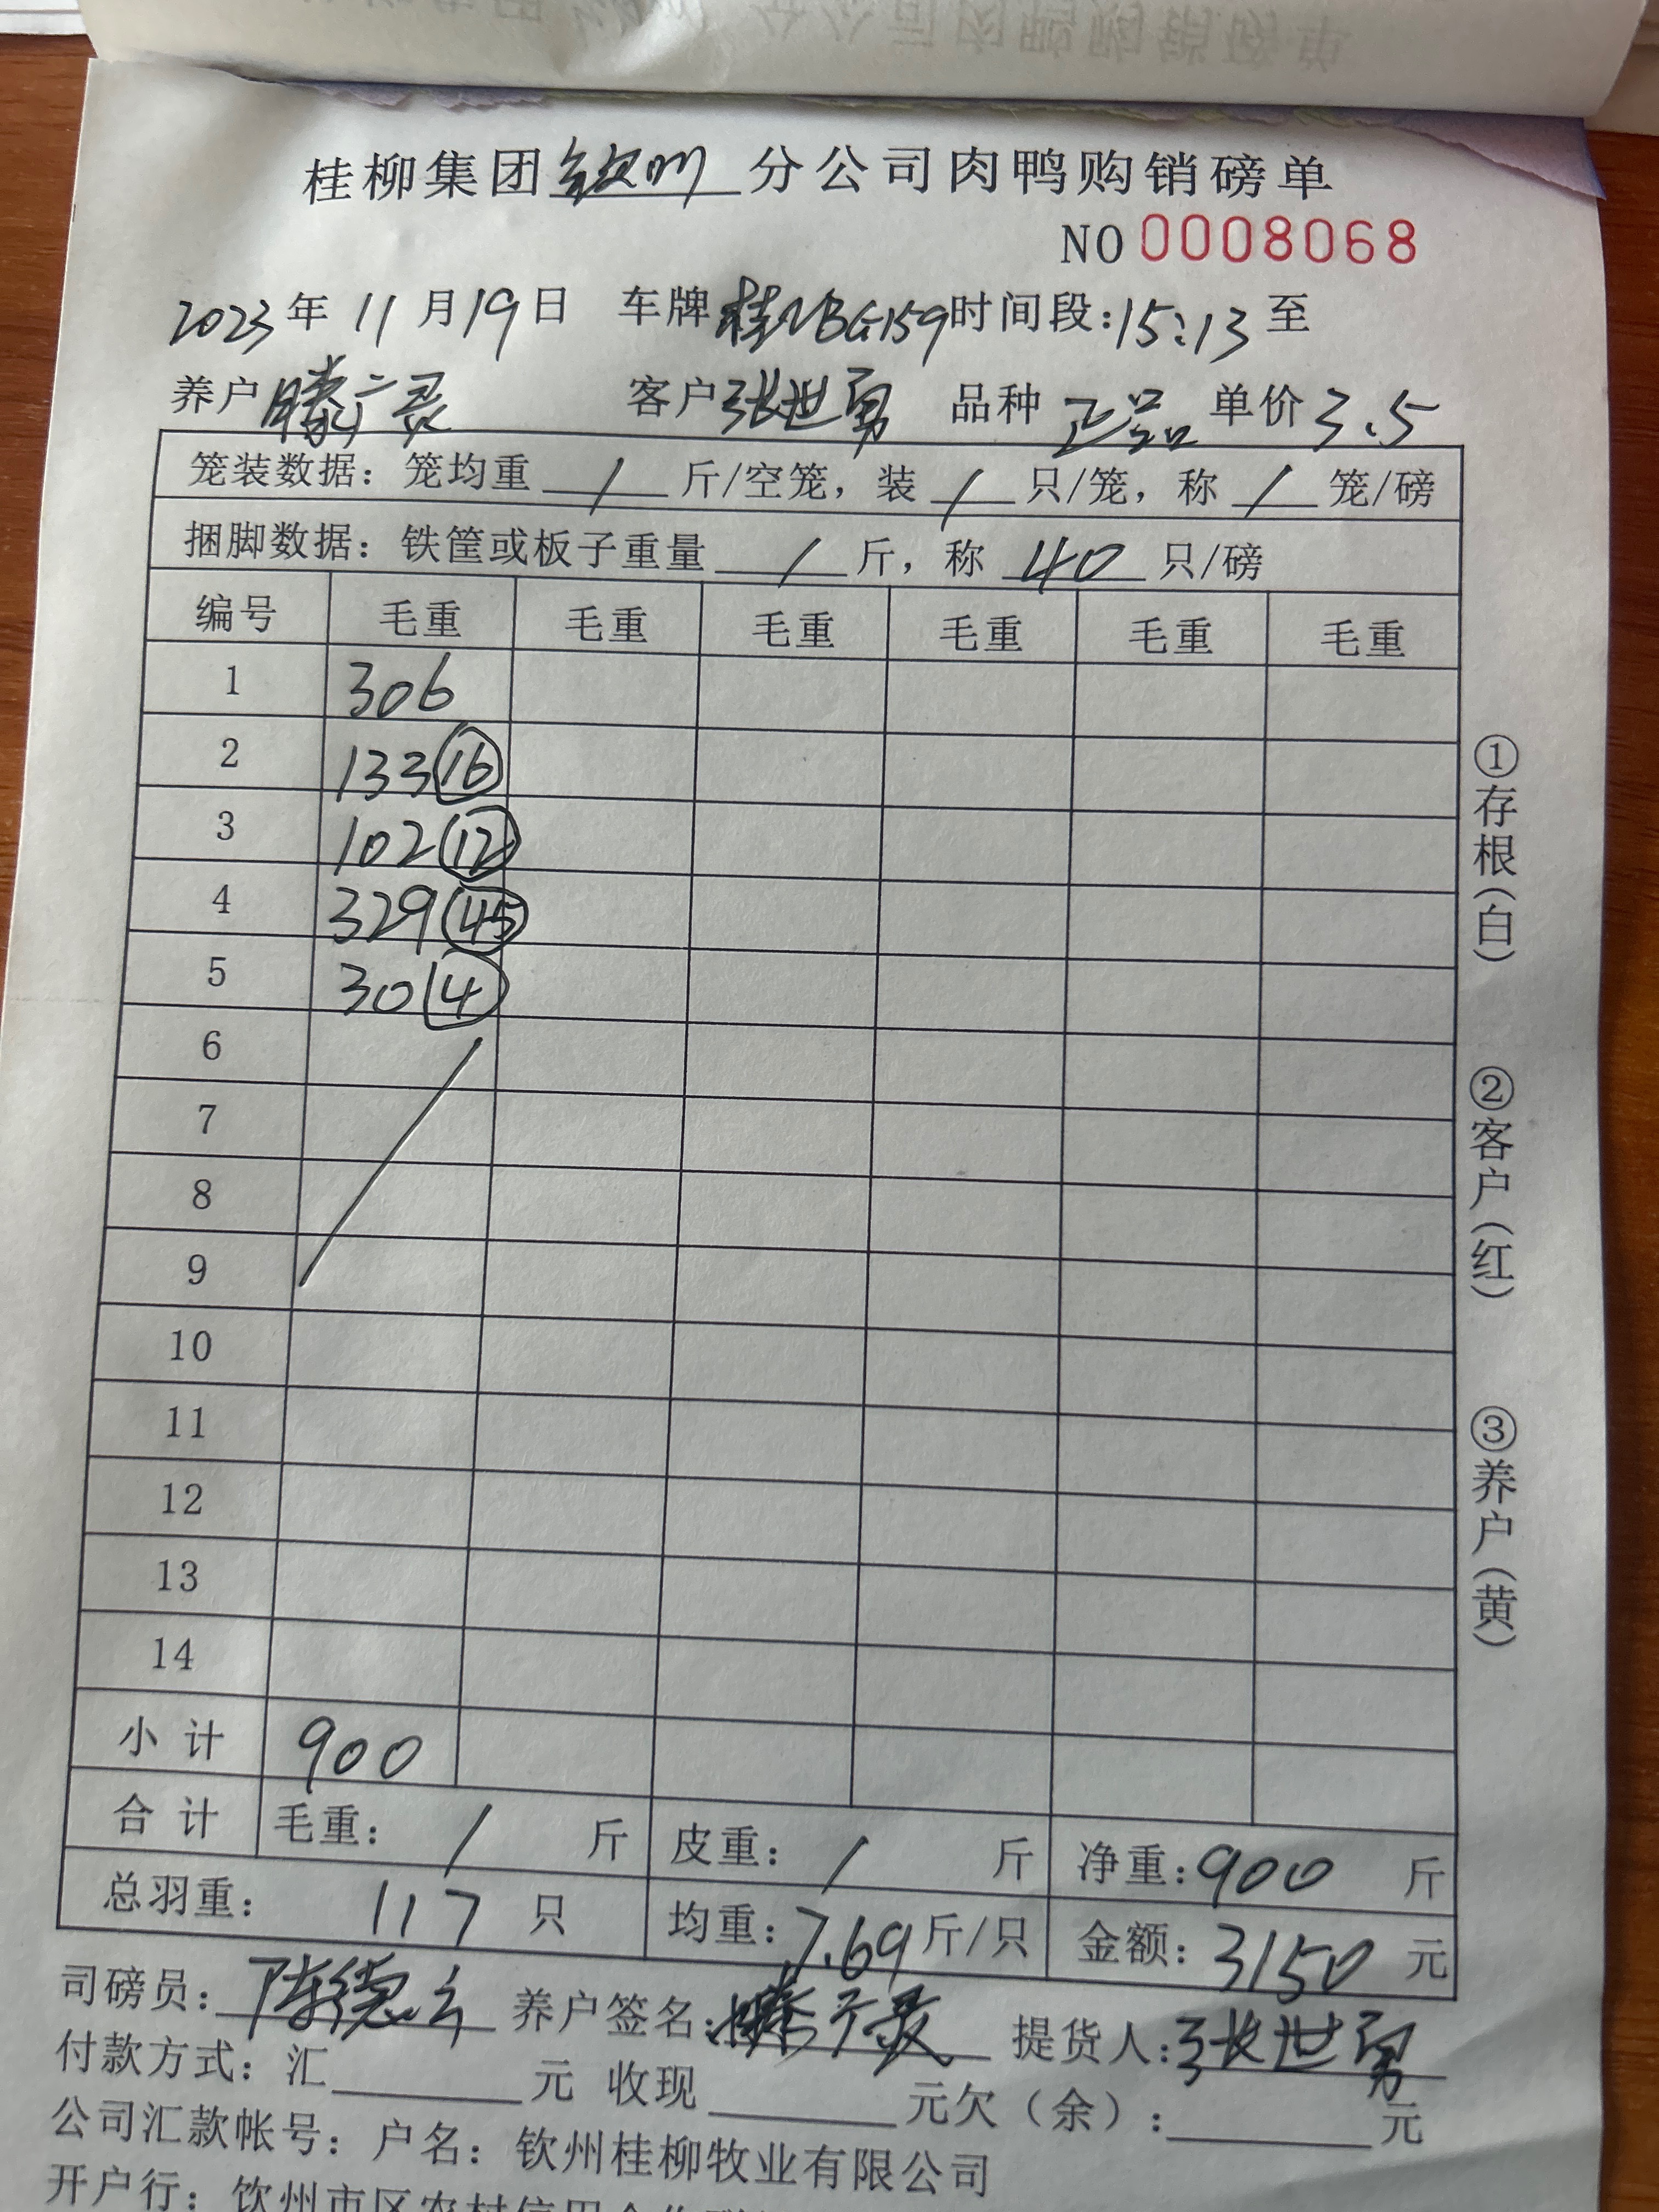 桂柳集团钦州分公司肉鸭购销磅单
NO 0008068
2023年11月19日 车牌桂NBG159时间段:15:13至
养户滕广灵 客户张世勇 品种正品 单价3.5
笼装数据: 笼均重 / 斤/空笼, 装 / 只/笼, 称 / 笼/磅
捆脚数据: 铁筐或板子重量 / 斤, 称 40 只/磅
编号 毛重 毛重 毛重 毛重 毛重 毛重
1 306
2 133 16
3 102 12
4 329 45
5 30 4
6
7
8
9
10
11
12
13
14
小计 900
合计 毛重: / 斤 皮重: / 斤 净重:900 斤
总羽重: 117 只 均重:7.69斤/只 金额:3150元
司磅员:陈德 养户签名:滕广灵 提货人:张世勇
付款方式: 汇 元 收现 元欠(余): 元
公司汇款帐号: 户名: 钦州桂柳牧业有限公司
开户行: 钦州市区农村信用合作
①存根(白)
②客户(红)
③养户(黄)